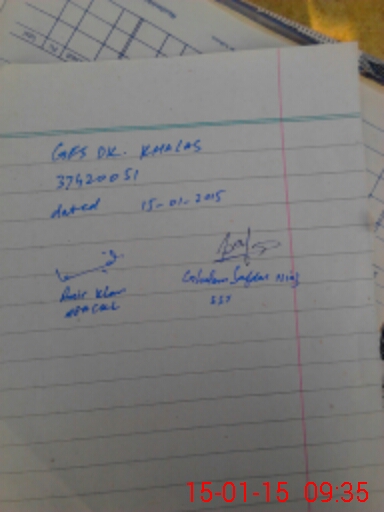 GES DK. KHALAS
37420051
dated 15-01-2015
Amir Khan
Ghulam Safdar Niaz
SST
15-01-15 09:35